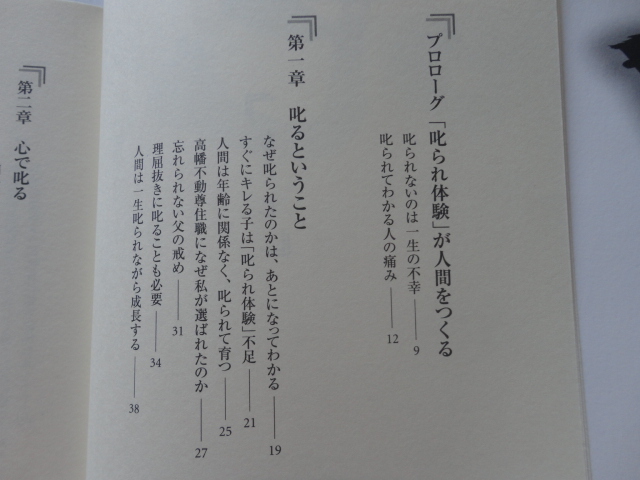 プロローグ 「叱られ体験」が人間をつくる
叱られないのは一生の不幸 —— 9
叱られてわかる人の痛み —— 12
第一章 叱るということ
なぜ叱られたのかは、あとになってわかる —— 19
すぐにキレる子は「叱られ体験」不足 —— 21
人間は年齢に関係なく、叱られて育つ —— 25
高幡不動尊住職になぜ私が選ばれたのか —— 27
忘れられない父の戒め —— 31
理屈抜きに叱ることも必要 —— 34
人間は一生叱られながら成長する —— 38
第二章 心で叱る